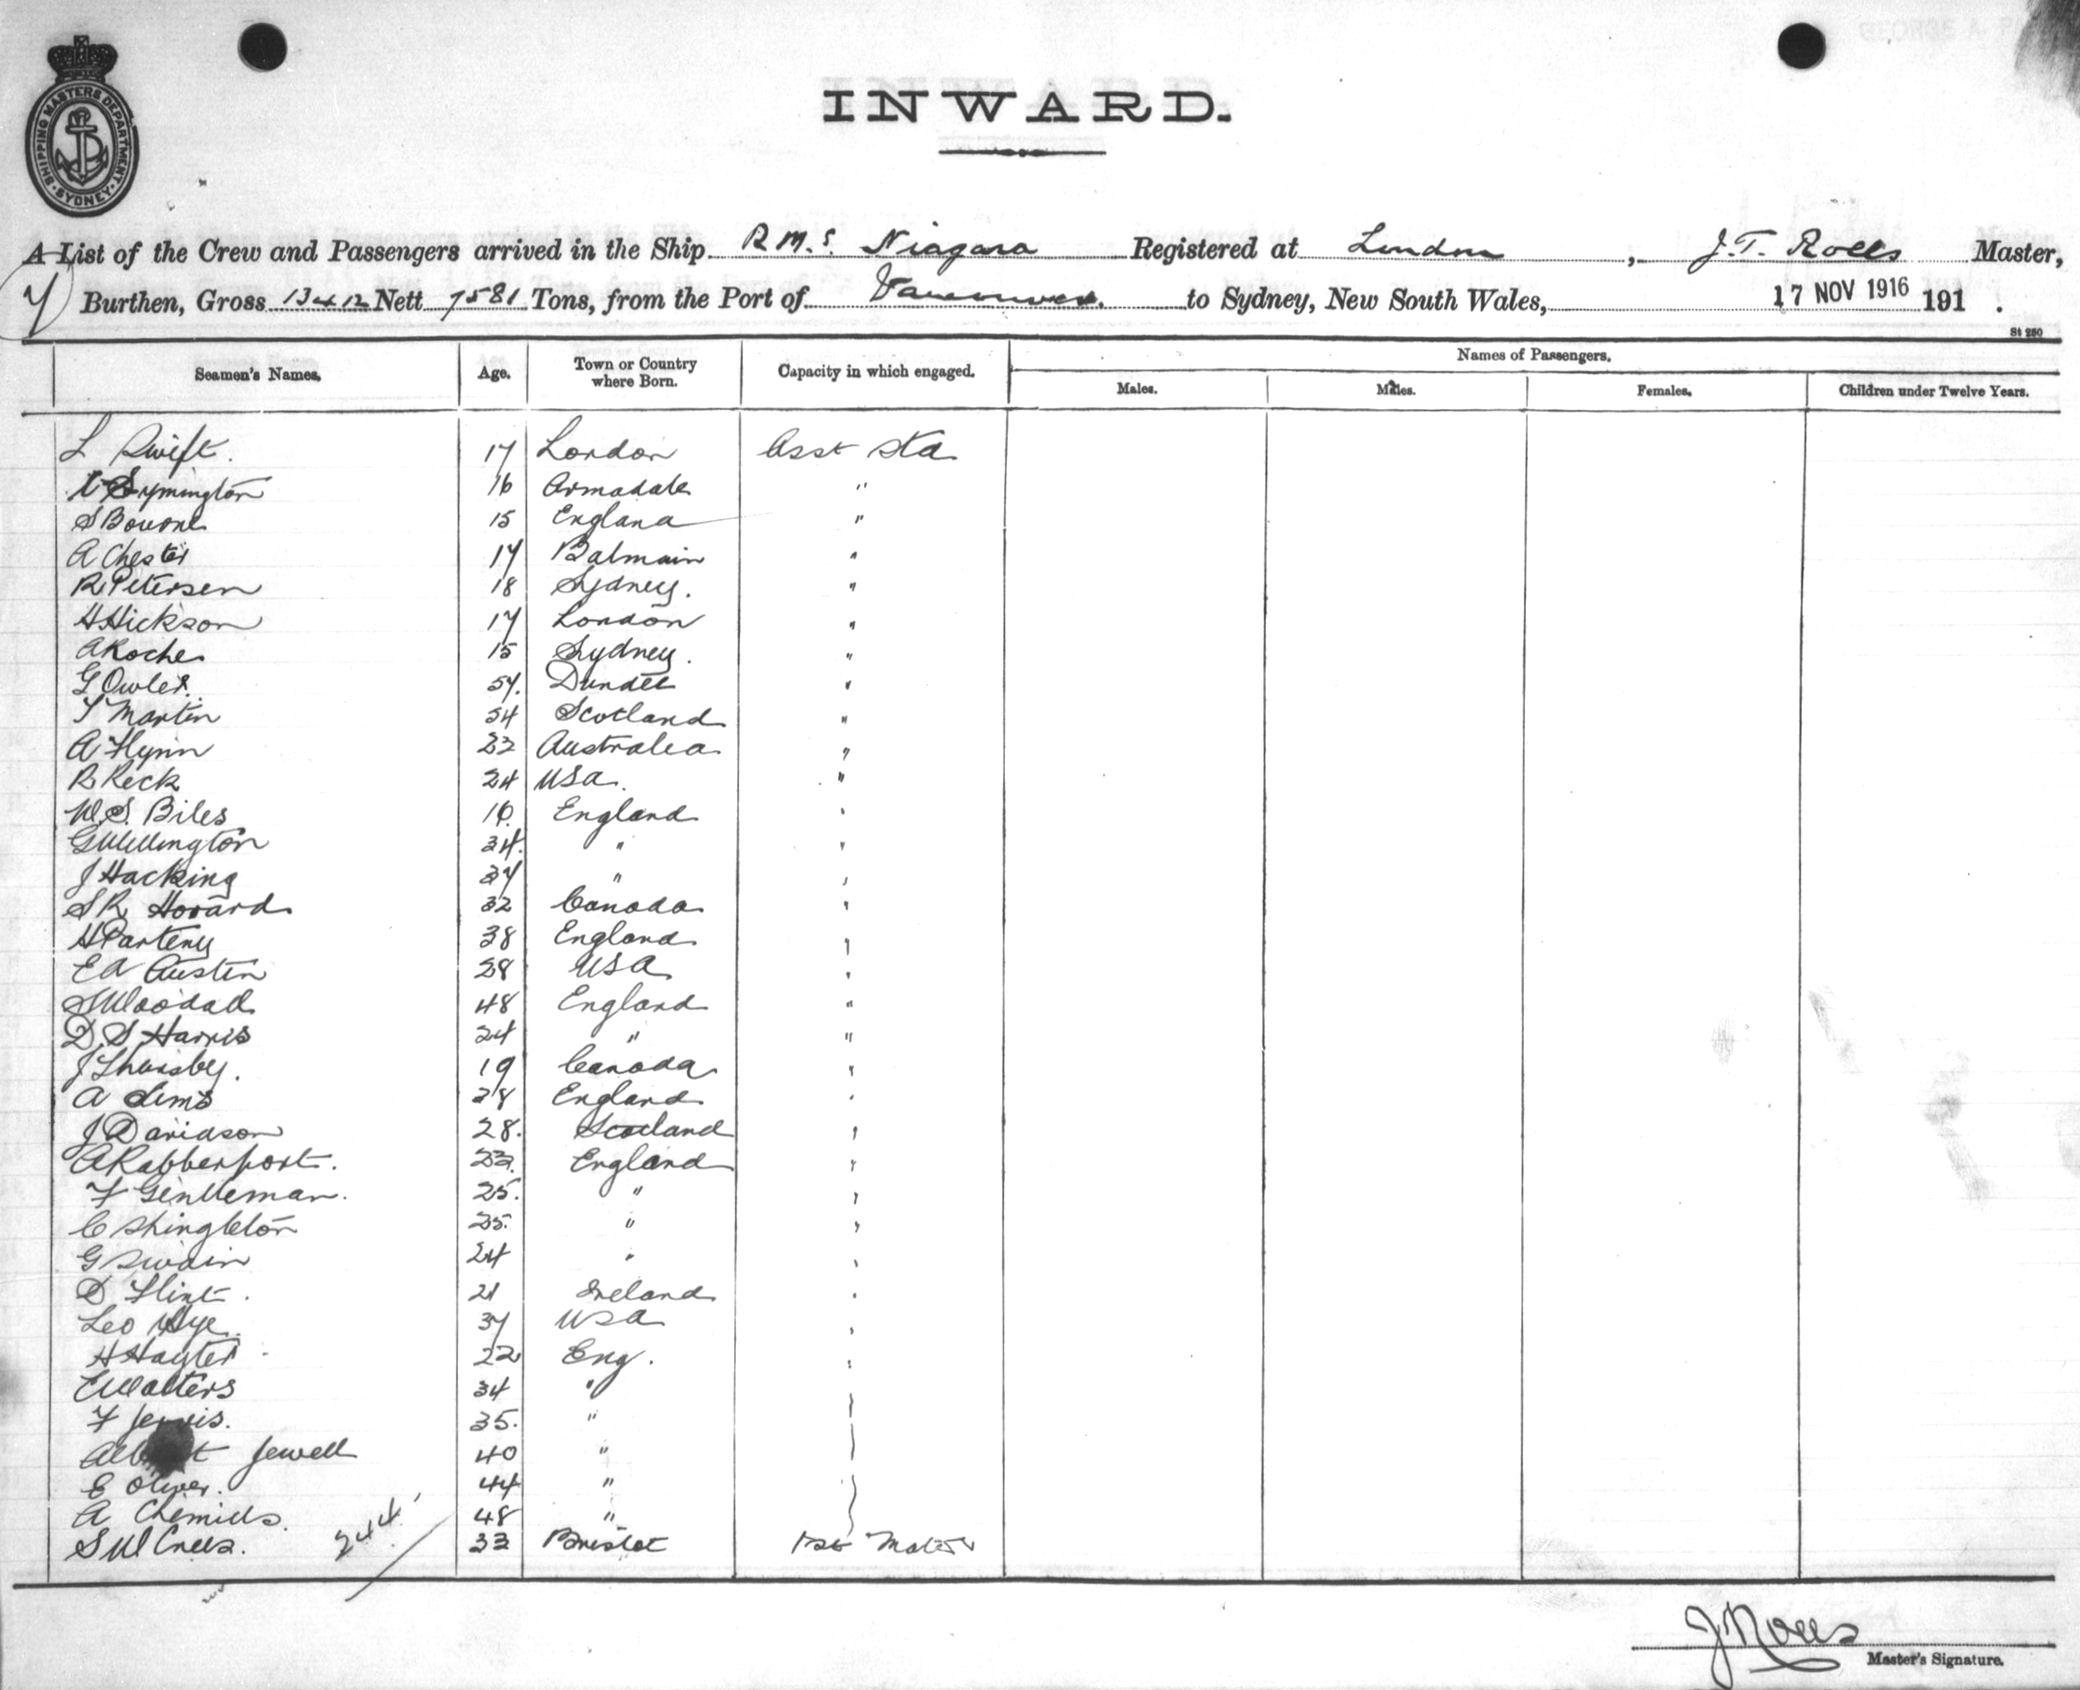 SHIPPING MASTERS DEPARTMENT · SYDNEY ·
INWARD.
A List of the Crew and Passengers arrived in the Ship R.M.S. Niagara Registered at London, J. T. Rolls Master,
Y Burthen, Gross 13412 Nett 7581 Tons, from the Port of Vancouver. to Sydney, New South Wales, 17 NOV 1916 191 .
St 260
Seamen's Names. Age. Town or Country where Born. Capacity in which engaged. Names of Passengers.
Males. Males. Females. Children under Twelve Years.
L Swift. 17 London Asst Std
Symington 16 Armadale "
S Bourne 15 England "
A Chester 17 Balmain "
R Petersen 18 Sydney. "
H Hickson 17 London "
A Roche 15 Sydney. "
G Owler. 57. Dundee "
T Martin 54 Scotland "
A Flynn 22 Australia "
R Reck 24 USA. "
W. S. Biles 16 England "
G Wellington 34. " "
J Hacking 37 " "
S R Howard 32 Canada "
H Parteny 38 England "
E A Austin 28 USA "
S Woodall 48 England "
D. S. Harris 24 " "
J Thursby. 19 Canada "
A Sims 28 England "
J Davidson 28. Scotland "
A Rabberport. 22. England "
F Gentleman. 25. " "
C Shingleton 25. " "
G Swain 24 " "
D Flint. 21 Ireland "
Leo Nye. 37 USA "
H Hayter 22 Eng. "
E Walters 34 "
F Jervis. 35. "
Albert Jewell 40 "
E Oliver. 44 "
A 48 "
S W Crees. 244 33 Bristol 1st Mate
J Rolls
Master's Signature.